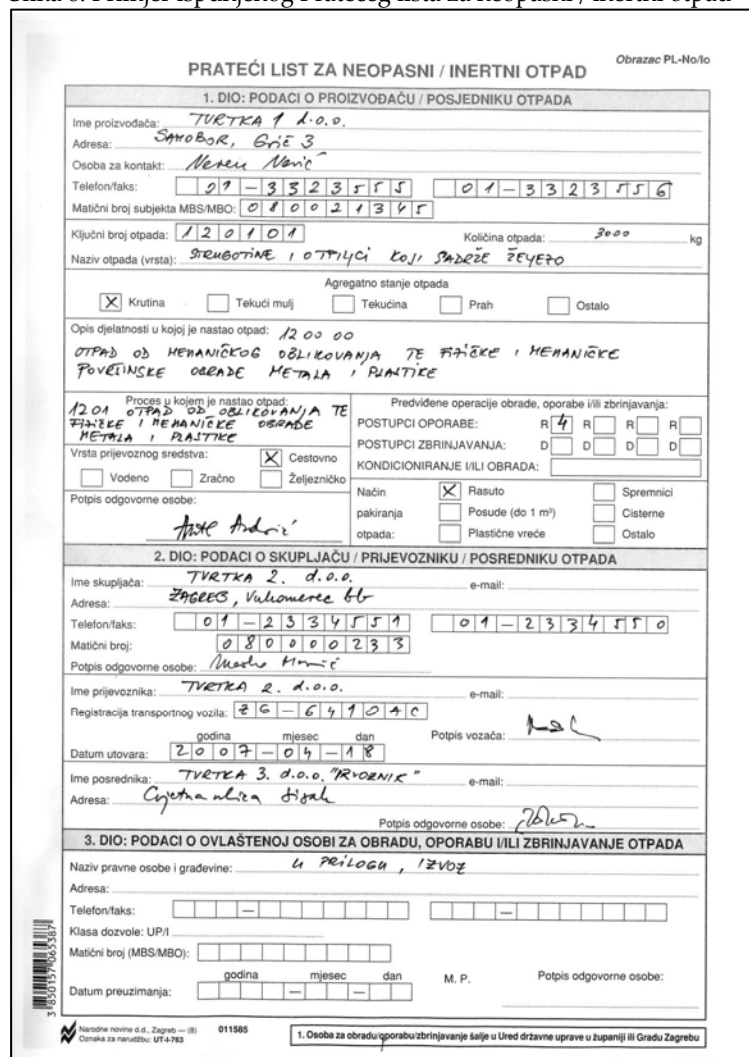 Obrazac PL-No/Io
PRATEĆI LIST ZA NEOPASNI / INERTNI OTPAD
1. DIO: PODACI O PROIZVOĐAČU / POSJEDNIKU OTPADA
Ime proizvođača: TVRTKA 1 d.o.o.
Adresa: SAMOBOR, Grič 3
Osoba za kontakt: Neven Nević
Telefon/faks: 01-3323555 01-3323556
Matični broj subjekta MBS/MBO: 080021345
Ključni broj otpada: 120101 Količina otpada: 3000 kg
Naziv otpada (vrsta): STRUGOTINE I OTPILJCI KOJI SADRŽE ŽELJEZO
Agregatno stanje otpada
X Krutina Tekući mulj Tekućina Prah Ostalo
Opis djelatnosti u kojoj je nastao otpad: 12 00 00
OTPAD OD MEHANIČKOG OBLIKOVANJA TE FIZIČKE I MEHANIČKE
POVRŠINSKE OBRADE METALA I PLASTIKE
Proces u kojem je nastao otpad:
1201 OTPAD OD OBLIKOVANJA TE
FIZIČKE I MEHANIČKE OBRADE
METALA I PLASTIKE
Predviđene operacije obrade, oporabe i/ili zbrinjavanja:
POSTUPCI OPORABE: R 4 R R R
POSTUPCI ZBRINJAVANJA: D D D D
KONDICIONIRANJE I/ILI OBRADA:
Vrsta prijevoznog sredstva: X Cestovno
Vodeno Zračno Željezničko
Potpis odgovorne osobe:
Način pakiranja otpada:
X Rasuto Spremnici
Posude (do 1 m³) Cisterne
Plastične vreće Ostalo
2. DIO: PODACI O SKUPLJAČU / PRIJEVOZNIKU / POSREDNIKU OTPADA
Ime skupljača: TVRTKA 2. d.o.o. e-mail:
Adresa: ZAGREB, Vukomerec bb
Telefon/faks: 01-2334551 01-2334550
Matični broj: 080000233
Potpis odgovorne osobe:
Ime prijevoznika: TVRTKA 2. d.o.o. e-mail:
Registracija transportnog vozila: ZG-6410AC
godina mjesec dan Potpis vozača:
Datum utovara: 2007-04-18
Ime posrednika: TVRTKA 3. d.o.o. "IZVOZNIK" e-mail:
Adresa: Cvjetna ulica Sisak
Potpis odgovorne osobe:
3. DIO: PODACI O OVLAŠTENOJ OSOBI ZA OBRADU, OPORABU I/ILI ZBRINJAVANJE OTPADA
Naziv pravne osobe i građevine: U PRILOGU, IZVOZ
Adresa:
Telefon/faks:
Klasa dozvole: UP/I
Matični broj (MBS/MBO):
godina mjesec dan M. P. Potpis odgovorne osobe:
Datum preuzimanja:
3 850157 065387
Narodne novine d.d., Zagreb — (8) 011585
Oznaka za narudžbu: UT-I-763
1. Osoba za obradu/oporabu/zbrinjavanje šalje u Ured državne uprave u županiji ili Gradu Zagrebu